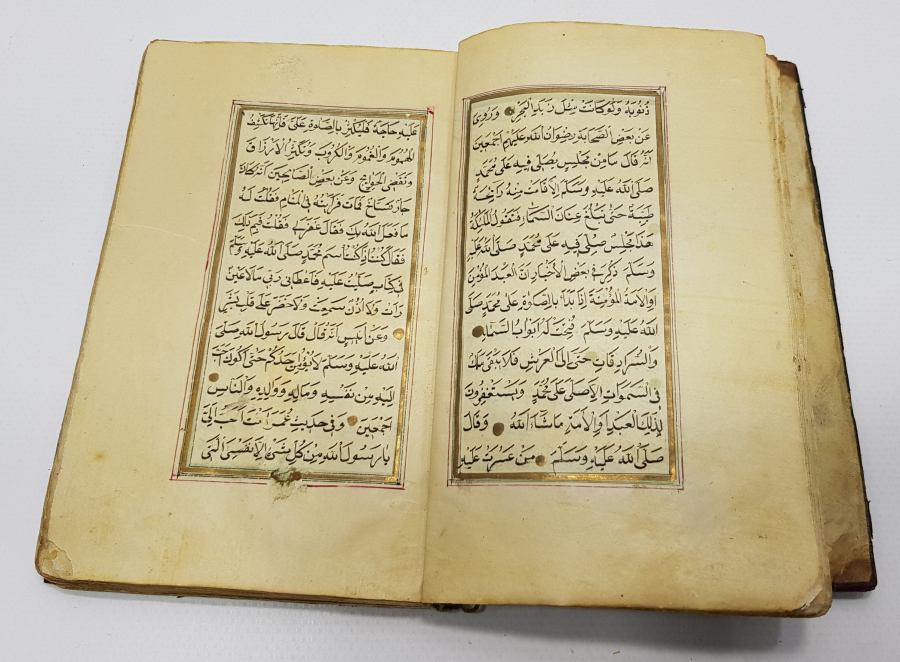 ذُنُوبُهُ وَلَوْكَانَتْ مِثْلَ زَبَدِ الْبَحْرِ وَرُوِىَ
عَنْ بَعْضِ الصَّحَابَةِ رِضْوَانُ اللهِ عَلَيْهِمْ اَجْمَعِينَ
اَنَّهُ قَالَ مَا مِنْ مَجْلِسٍ يُصَلَّى فِيهِ عَلَى مُحَمَّدٍ
صَلَّى اللهُ عَلَيْهِ وَسَلَّمَ اِلَّا قَامَتْ مِنْهُ رَائِحَةٌ
طَيِّبَةٌ حَتَّى تَبْلُغَ عِنَانَ السَّمَاءِ فَتَقُولُ الْمَلٰئِكَةُ
هَذَا مَجْلِسٌ صُلِّىَ فِيهِ عَلَى مُحَمَّدٍ صَلَّى اللهُ عَلَيْهِ
وَسَلَّمَ ذُكِرَ فِى بَعْضِ الْاَخْبَارِ اَنَّ الْعَبْدَ الْمُؤْمِنَ
اَوِالْاَمَةَ الْمُؤْمِنَةَ اِذَا بَدَاَ بِالصَّلٰوةِ عَلَى مُحَمَّدٍ صَلَّى
اللهُ عَلَيْهِ وَسَلَّمَ فُتِحَتْ لَهُ اَبْوَابُ السَّمَاءِ
وَالسُّرَادِقَاتُ حَتَّى اِلَى الْعَرْشِ فَلَا يَبْقَى مَلَكٌ
فِى السَّمٰوَاتِ اِلَّا صَلَّى عَلَى مُحَمَّدٍ وَيَسْتَغْفِرُونَ
لِذٰلِكَ الْعَبْدِ اَوِالْاَمَةِ مَاشَاءَ اللهُ وَقَالَ
صَلَّى اللهُ عَلَيْهِ وَسَلَّمَ مَنْ عَسُرَتْ عَلَيْهِ
عَلَيْهِ حَاجَةٌ فَلْيُكْثِرْ بِالصَّلٰوةِ عَلَىَّ فَاِنَّهَا تَكْشِفُ
الْهُمُومَ وَالْغُمُومَ وَالْكُرُوبَ وَتُكَثِّرُ الْاَرْزَاقَ
وَتَقْضِى الْحَوَائِجَ وَعَنْ بَعْضِ الصَّالِحِينَ اَنَّهُ كَانَ
جَارٌ نَسَّاخٌ فَمَاتَ فَرَاَيْتُهُ فِى الْمَنَامِ فَقُلْتُ لَهُ
مَا فَعَلَ اللهُ بِكَ فَقَالَ غَفَرَلِى فَقُلْتُ فَبِمَ ذٰلِكَ
فَقَالَ كُنْتُ اِذَا كَتَبْتُ اسْمَ مُحَمَّدٍ صَلَّى اللهُ عَلَيْهِ وَسَلَّمَ
فِى كِتَابٍ صَلَّيْتُ عَلَيْهِ فَاَعْطَانِى رَبِّى مَالَا عَيْنٌ
رَاَتْ وَلَا اُذُنٌ سَمِعَتْ وَلَا خَطَرَ عَلَى قَلْبِ بَشَرٍ
وَعَنْ اَنَسٍ اَنَّهُ قَالَ قَالَ رَسُولُ اللهِ صَلَّى
اللهُ عَلَيْهِ وَسَلَّمَ لَا يُؤْمِنُ اَحَدُكُمْ حَتَّى اَكُونَ اَحَبَّ
اِلَيْهِ مِنْ نَفْسِهِ وَمَالِهِ وَوَلَدِهِ وَوَالِدِهِ وَالنَّاسِ
اَجْمَعِينَ وَفِى حَدِيثِ عُمَرَ اَنْتَ اَحَبُّ اِلَىَّ
يَارَسُولَ اللهِ مِنْ كُلِّ شَىْءٍ اِلَّا نَفْسِىَ الَّتِى